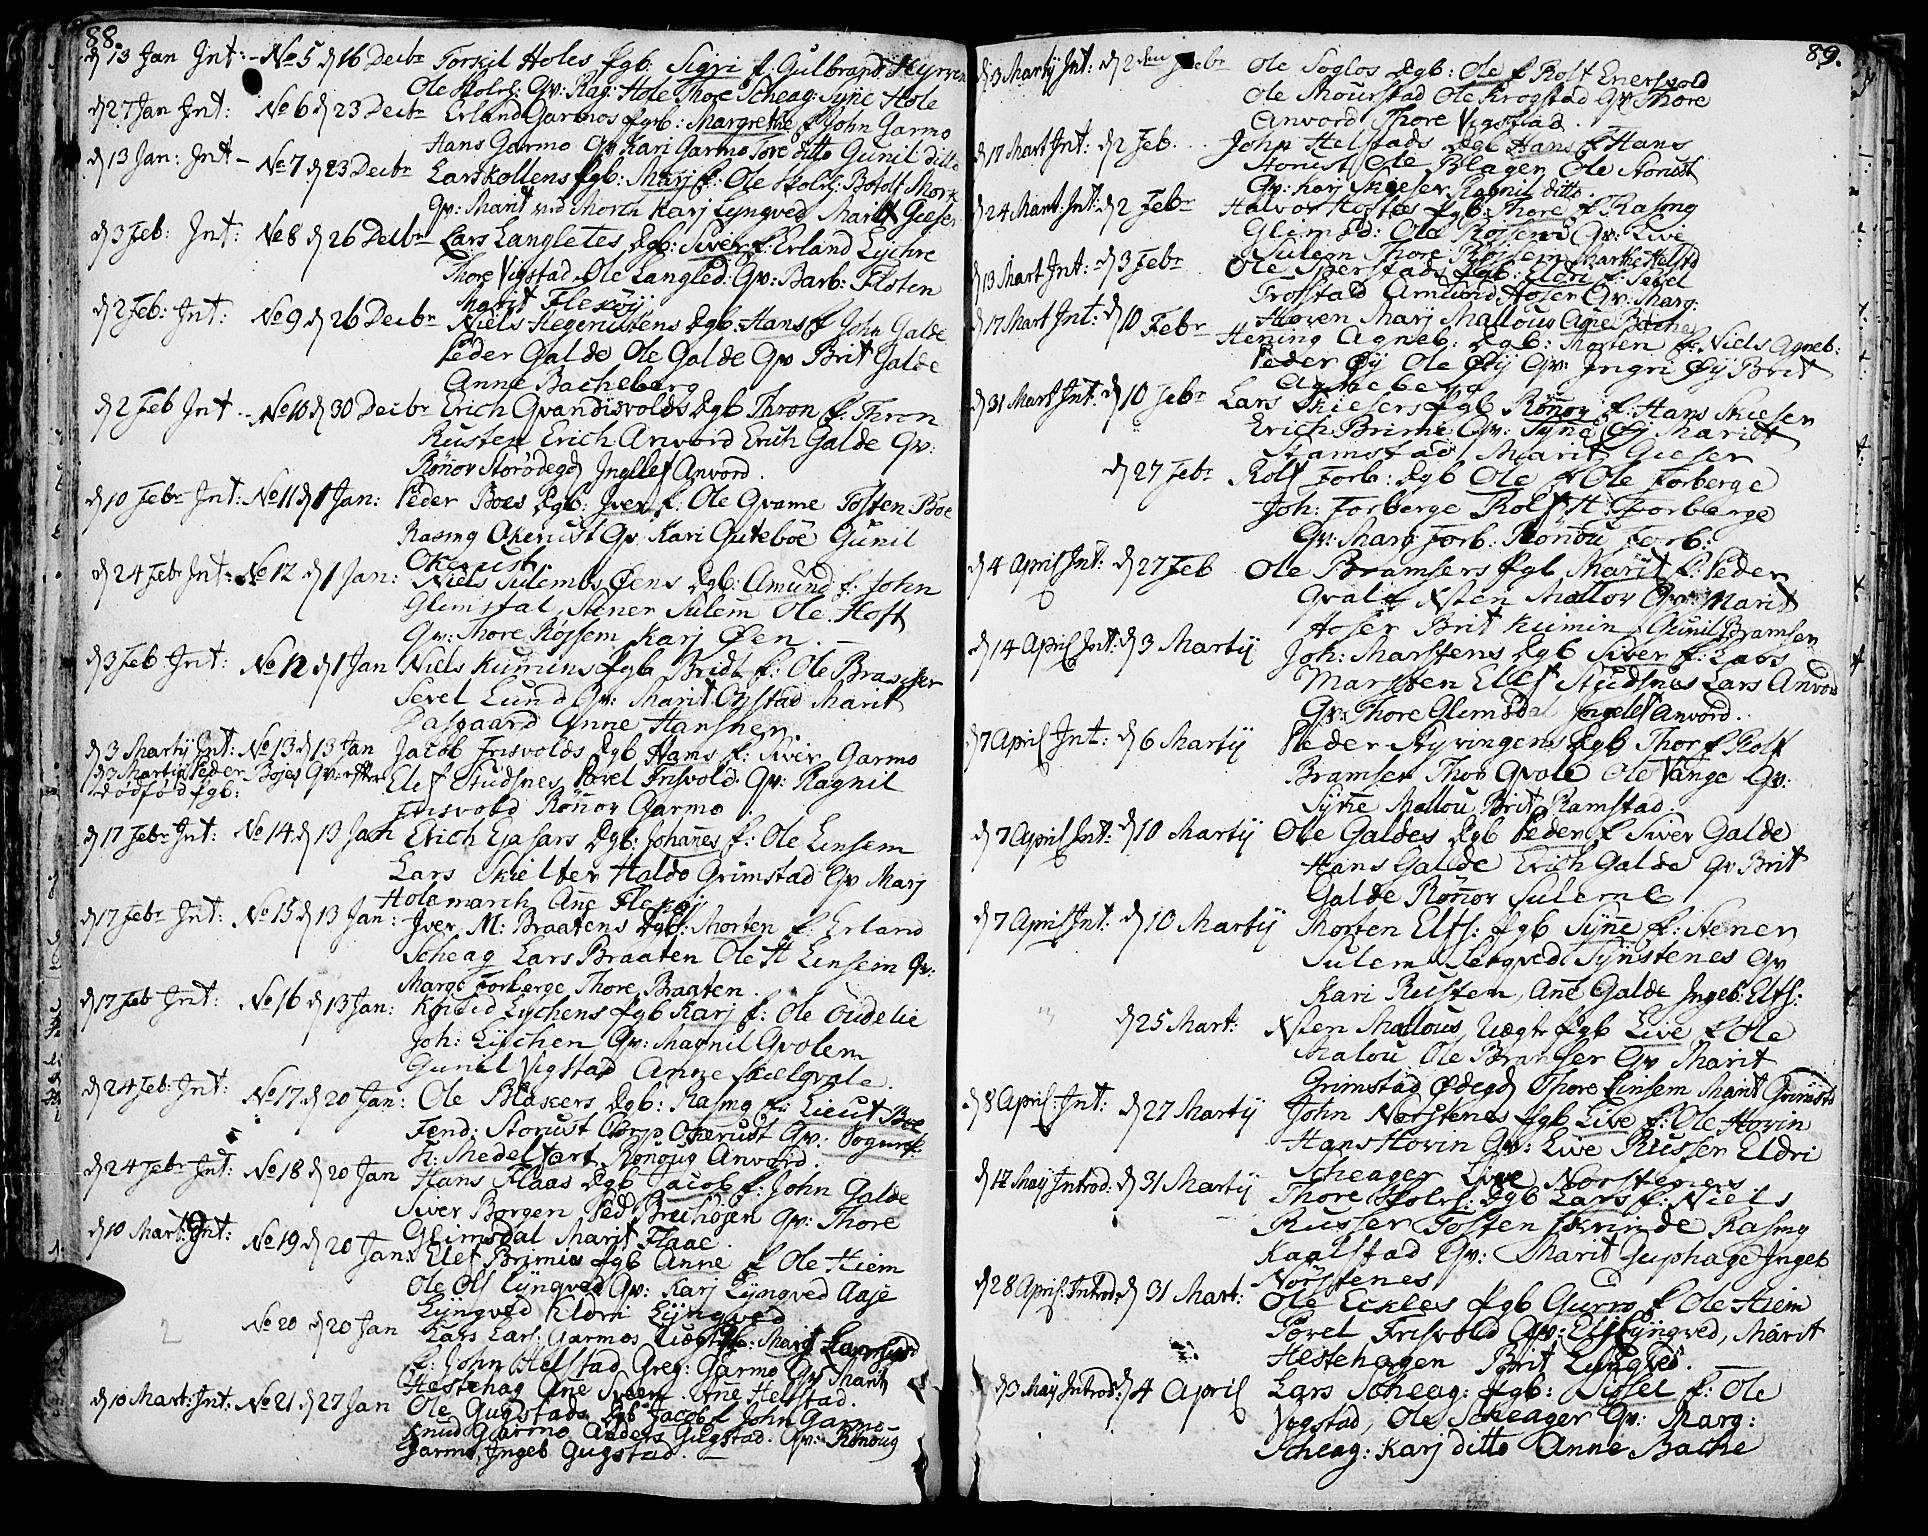 88.
d 13 Jan Int: - No 5 d 16 Decbr Torkil Holes fgb: Sigri f. Gulbrand
Ole Skolrs: Qv: Rag: Hole Thore Scheag: Syne Hole
d 27 Jan Int: No 6 d 23 Decbr Erland Garmos fgb: Margrethe f John Garmo
Hans Garmo Qv Kari Garmo Tore ditto Gunil ditto
d 13 Jan: Int - No 7 d 23 Decbr Lars Kollens fgb: Marj f: Ole Skolrs: Botolf
Qv: Marit Karj Lyngved Marit Gieser
d 3 Feb: Int: No 8 d 26 Decbr Lars Langletes Dgb: Siver f: Erland Lychre
Thore Vigstad Ole Langled: Qv: Barb: Floten
Marit Flekøy
d 2 Feb: Int: No 9 d 26 Decbr Niels Hegerustens Dgb: Hans f John Galde
Peder Galde Ole Galde Qv Brit Galde
Anne Bacheberg
d 2 Feb Int - No 10 d 30 Decbr Erich Qvandisvolds Dgb Thron f: Thron
Rusten Erich Anvord Erich Galde Qv:
Rønnov Storødegd Ingelef Anvord.
d 10 Febr Int: No 11 d 1 Jan: Peder Boes Dgb: Iver f: Ole Qvame Tosten Böe
Rasmg Okerust Qv Kari Gutebøe Gunil
Okerust.
d 24 Febr Int: No 12 d 1 Jan: Niels Sulembs Øens Dgb: Amund f: John
Glimstal, Stener Sulem Ole Hoft
Qv: Thore Røjsem Karj Øen. -
d 3 Feb Int: No 12 d 1 Jan Niels Kumins fgb Bridt f: Ole Bramser
Sevel Lund Qv: Marit Marit
Dalgaard Anne Hanshen.
d 3 Martij Int: No 13 d 13 Jan Jacob Frisvolds Dgb Hans f: Siver Garmo
d 3 Martij Peder Bojes Qv: efter Elef Studsnes Povel Frisvold. Qv: Ragnil
dødfød fgb: Frisvold Rønnov Garmo.
d 17 Febr Int: No 14 d 13 Jan Erich Gjasars Dgb: Johannes f: Ole Linsem
Lars Skielber Haldo Grimstad Qv Marj
Holemarch Ane Flekøy
d 17 Febr Int: No 15 d 13 Jan: Iver M: Braatens Dgb: Morten f: Erland
Scheag Lars Braaten Ole H Linsem Qv:
Marge Forberge Thore Braaten.
d 17 Feb Int: No 16 d 13 Jan: Lychens fgb Karj f: Ole Oudelie
Joh: Lychen Qv: Magnil Qvolem
Gunil Vigstad Anne Skielqvale.
d 24 Feb: Int: No 17 d 20 Jan: Ole Blakers Dgb: Rasmg f: Lieut Boe
Fend: Storust Corp Okerust Qv:
Fr: Medelfart Rønoug Anvord.
d 24 Febr Int: No 18 d 20 Jan Hans Flaas Dgb Jacob f: John Galde
Siver Borgen Ped Qv: Thore
Glimsdal Marit Flaae.
d 10 Mart: Int: No 19 d 20 Jan: Elef Brimis fgb Anne f Ole Hiem
Ole Ols Lyngved Qv: Karj Lyngved Aaje
Lyngved Eldri Lyngved
No 20 d 20 Jan Lars Lars: Garmos Uægte fgb: Marit
f: John Helstad Greg: Garmo Qv Marit
Hestehag Ane Sveen. Ane Helstad.
d 10 Mart: Int: No 21 d 27 Jan Ole Gugstads Dgb Jacob f John Garmo
Knud Garmo Anders Gugstad. Qv: Rønoug
Garmo, Ingeb Gugstad. -
89.
d 3 Martij Int: d 2 den Febr Ole Soglos Dgb: Ole f Rolf Enersvold
Ole Mourstad Ole Krogstad Qv Thore
Anvord Thore Vigstad.
d 17 Mart Int: d 2 Feb. John Helstads Dgb Hans f Hans
Storust Ole Blager Ole Storust
Qv: Karj Skieser Ragnil ditto
d 24 Mart: Int: d 2 Febr Halvor Hoftes fgb: Thore f Rasmg
Glimsd: Ole Røjsem Qv: Live
Sulem Thore Røjsem Marthe Helstd
d 13 Mart Int: - d 3 Febr Ole Sperstads fgb: Eldri f: Sevel
Trosstad Amund Hoser Qv: Marg:
Hoven Marj Mallous Ane Bache
d 17 Mart Int: d 10 Febr Hening Agneb: Dgb: Morten f: Niels Agneb:
Peder Øy Ole Øy Qv: Ingri Øy Brit
Agneberg
d 31 Mart Int: d 10 Febr Lars Skiesers fgb Rønnov f: Hans Skieser
Erich Brime Qv: Syne Øy Maridt
Stamstad Marit Gieser
d 27 Febr Rolf Forb: Dgb Ole f Ole Forberge
Joh: Forberge Rolf H: Forberge
Qv: Marj Forb: Rønou Forb:
d 4 April Int: d 27 Feb Ole Bramsers fgb Marit f: Peder
Qvale Nsten Mallov Qv: Marit
Hoser Brit Kumin Gunil Bramser
d 14 April Int: d 3 Martij Joh: Marstens Dgb Siver f: Lars
Marsten Elef Studsnes Lars Anvord
Qv: Thore Glimsdal Ingelef Anvord.
d 7 April Int: d 6 Martij Peder Styvingens Dgb Thor f Rolf
Bramser Thor Qvale Ole Vange Qv:
Syne Mallou Brit Ramstad.
d 7 April Int: d 10 Martij Ole Galdes Dgb Peder f Siver Galde
Hans Galde Erich Galde Qv Brit
Galde Rønnov Suleme
d 7 April Int: d 10 Martij Morten Elfs: fgb Syne f: Stener
Sulem Siegved Synstenes Qv
Kari Rusten, Ane Galde Ingeb: Elfs:
d 25 Mart: Nsten Mallous, Uægte fgb Live f Ole
Malou Ole Bramser Qv Marit
Grimstad Ødegd Thore Linsem Marit Grimstd
d 8 April: Int: d 27 Martij John Norstenes fgb Live f: Ole Hovin
Hans Hovin Qv: Live Russer Eldri
Scheager Live Norstenes.
d 12 May Introd: d 31 Martij Thore Skolrs: Dgb Lars f: Niels
Russer Tosten Skrinde Rasmg
Kaalstad Qv: Marit Suphage Ingeb
Norstenes
d 28 April: Introd: d 31 Mart: Ole Eckles fgb Gurro f Ole Hiem
Povel Frisvold Qv: Els Lyngved, Marit
Hestehagen Brit Lyngved.
d 3 May Introd: d 4 April Lars Scheag: fgb: Sissel f: Ole
Vigstad, Ole Scheager Qv: Marg:
Scheag: Karj ditto Anne Bache